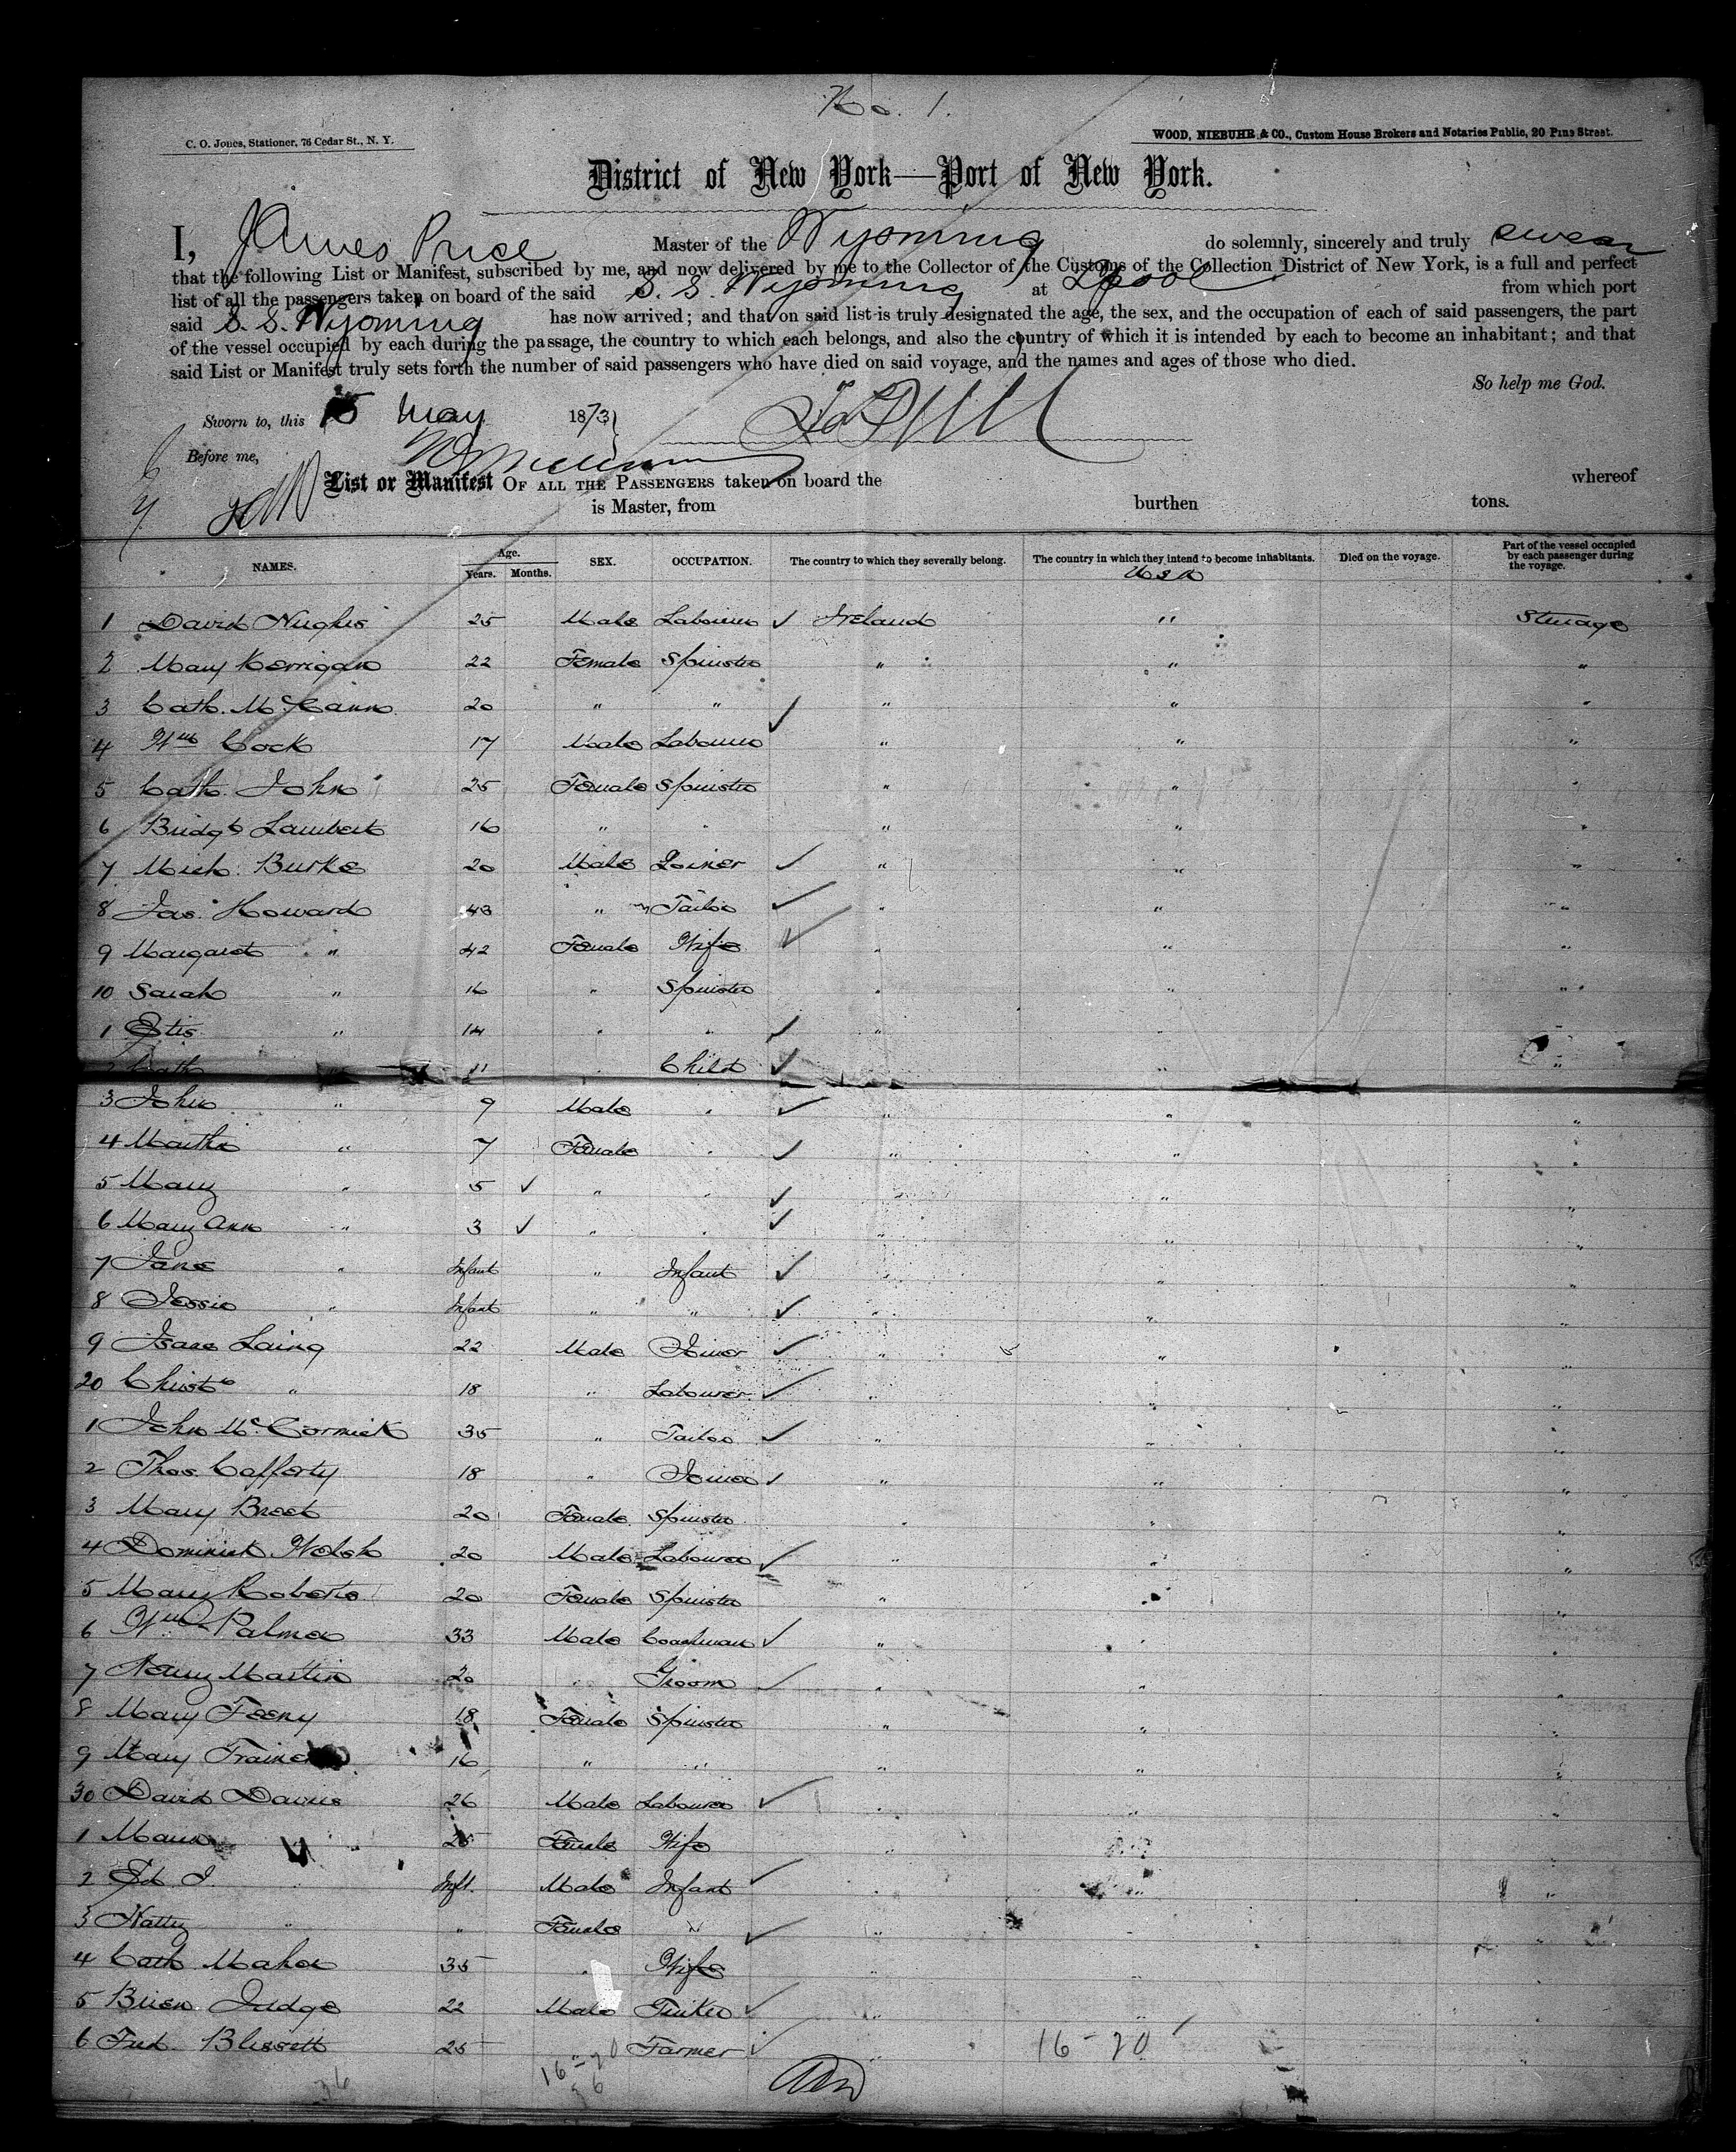 No. 1.
C. O. Jones, Stationer, 76 Cedar St., N. Y.
WOOD, NIEBUHR & CO., Custom House Brokers and Notaries Public, 20 Pine Street.
District of New York—Port of New York.
I, James Price Master of the Wyoming do solemnly, sincerely and truly swear
that the following List or Manifest, subscribed by me, and now delivered by me to the Collector of the Customs of the Collection District of New York, is a full and perfect
list of all the passengers taken on board of the said S. S. Wyoming at Lpool from which port
said S. S. Wyoming has now arrived; and that on said list is truly designated the age, the sex, and the occupation of each of said passengers, the part
of the vessel occupied by each during the passage, the country to which each belongs, and also the country of which it is intended by each to become an inhabitant; and that
said List or Manifest truly sets forth the number of said passengers who have died on said voyage, and the names and ages of those who died.
So help me God.
Sworn to, this 15 May 1873
Before me,
List or Manifest OF ALL THE PASSENGERS taken on board the whereof
is Master, from burthen tons.
NAMES. Age. Years. Months. SEX. OCCUPATION. The country to which they severally belong. The country in which they intend to become inhabitants. Died on the voyage. Part of the vessel occupied by each passenger during the voyage.
USA
1 David Hughes 25 Male Labourer ✓ Ireland " Steerage
2 Mary Kerrigan 22 Female Spinster " " "
3 Cath. McCann 20 " " ✓ " " "
4 Wm Cock 17 Male Labourer " " "
5 Cath. John 25 Female Spinster " " "
6 Bridgt Lambert 16 " " " " "
7 Mich. Burke 20 Male Joiner ✓ " " "
8 Jas. Howard 43 " Tailor ✓ " " "
9 Margaret " 42 Female Wife ✓ " " "
10 Sarah " 16 " Spinster " " "
1 " 14 " " ✓ " " "
2 Cath " 11 " Child ✓ " "
3 John " 9 Male " ✓ " " "
4 Martha " 7 Female " ✓ " " "
5 Mary " 5 ✓ " " ✓ " "
6 Mary Ann " 3 ✓ " " ✓ " " "
7 Jane " Infant " Infant ✓ " " "
8 Jessie " Infant " " ✓ " " "
9 Isaac Laing 22 Male Joiner ✓ " " "
20 Christr " 18 " Labourer ✓ " " "
1 John McCormick 35 " Tailor ✓ " " "
2 Thos. Cafferty 18 " Joiner ✓ " " "
3 Mary Breet 20 Female Spinster " " "
4 Dominick Welsh 20 Male Labourer ✓ " " "
5 Mary Roberts 20 Female Spinster " " "
6 Wm Palmer 33 Male Coachman ✓ " " "
7 Henry Martin 20 " Groom ✓ " " "
8 Mary Feeny 18 Female Spinster " " "
9 Mary Trainer 16 " " " " "
30 David Davies 26 Male Labourer ✓ " " "
1 " 25 Female Wife " " "
2 Ed J. " Inft. Male Infant ✓ " " "
3 Hatty " " Female " ✓ " "
4 Cath Maher 35 " Wife " "
5 Brien Judge 22 Male Tinker ✓ " "
6 Fred. Blissett 25 " Farmer ✓ " "
16-20
16-20
36